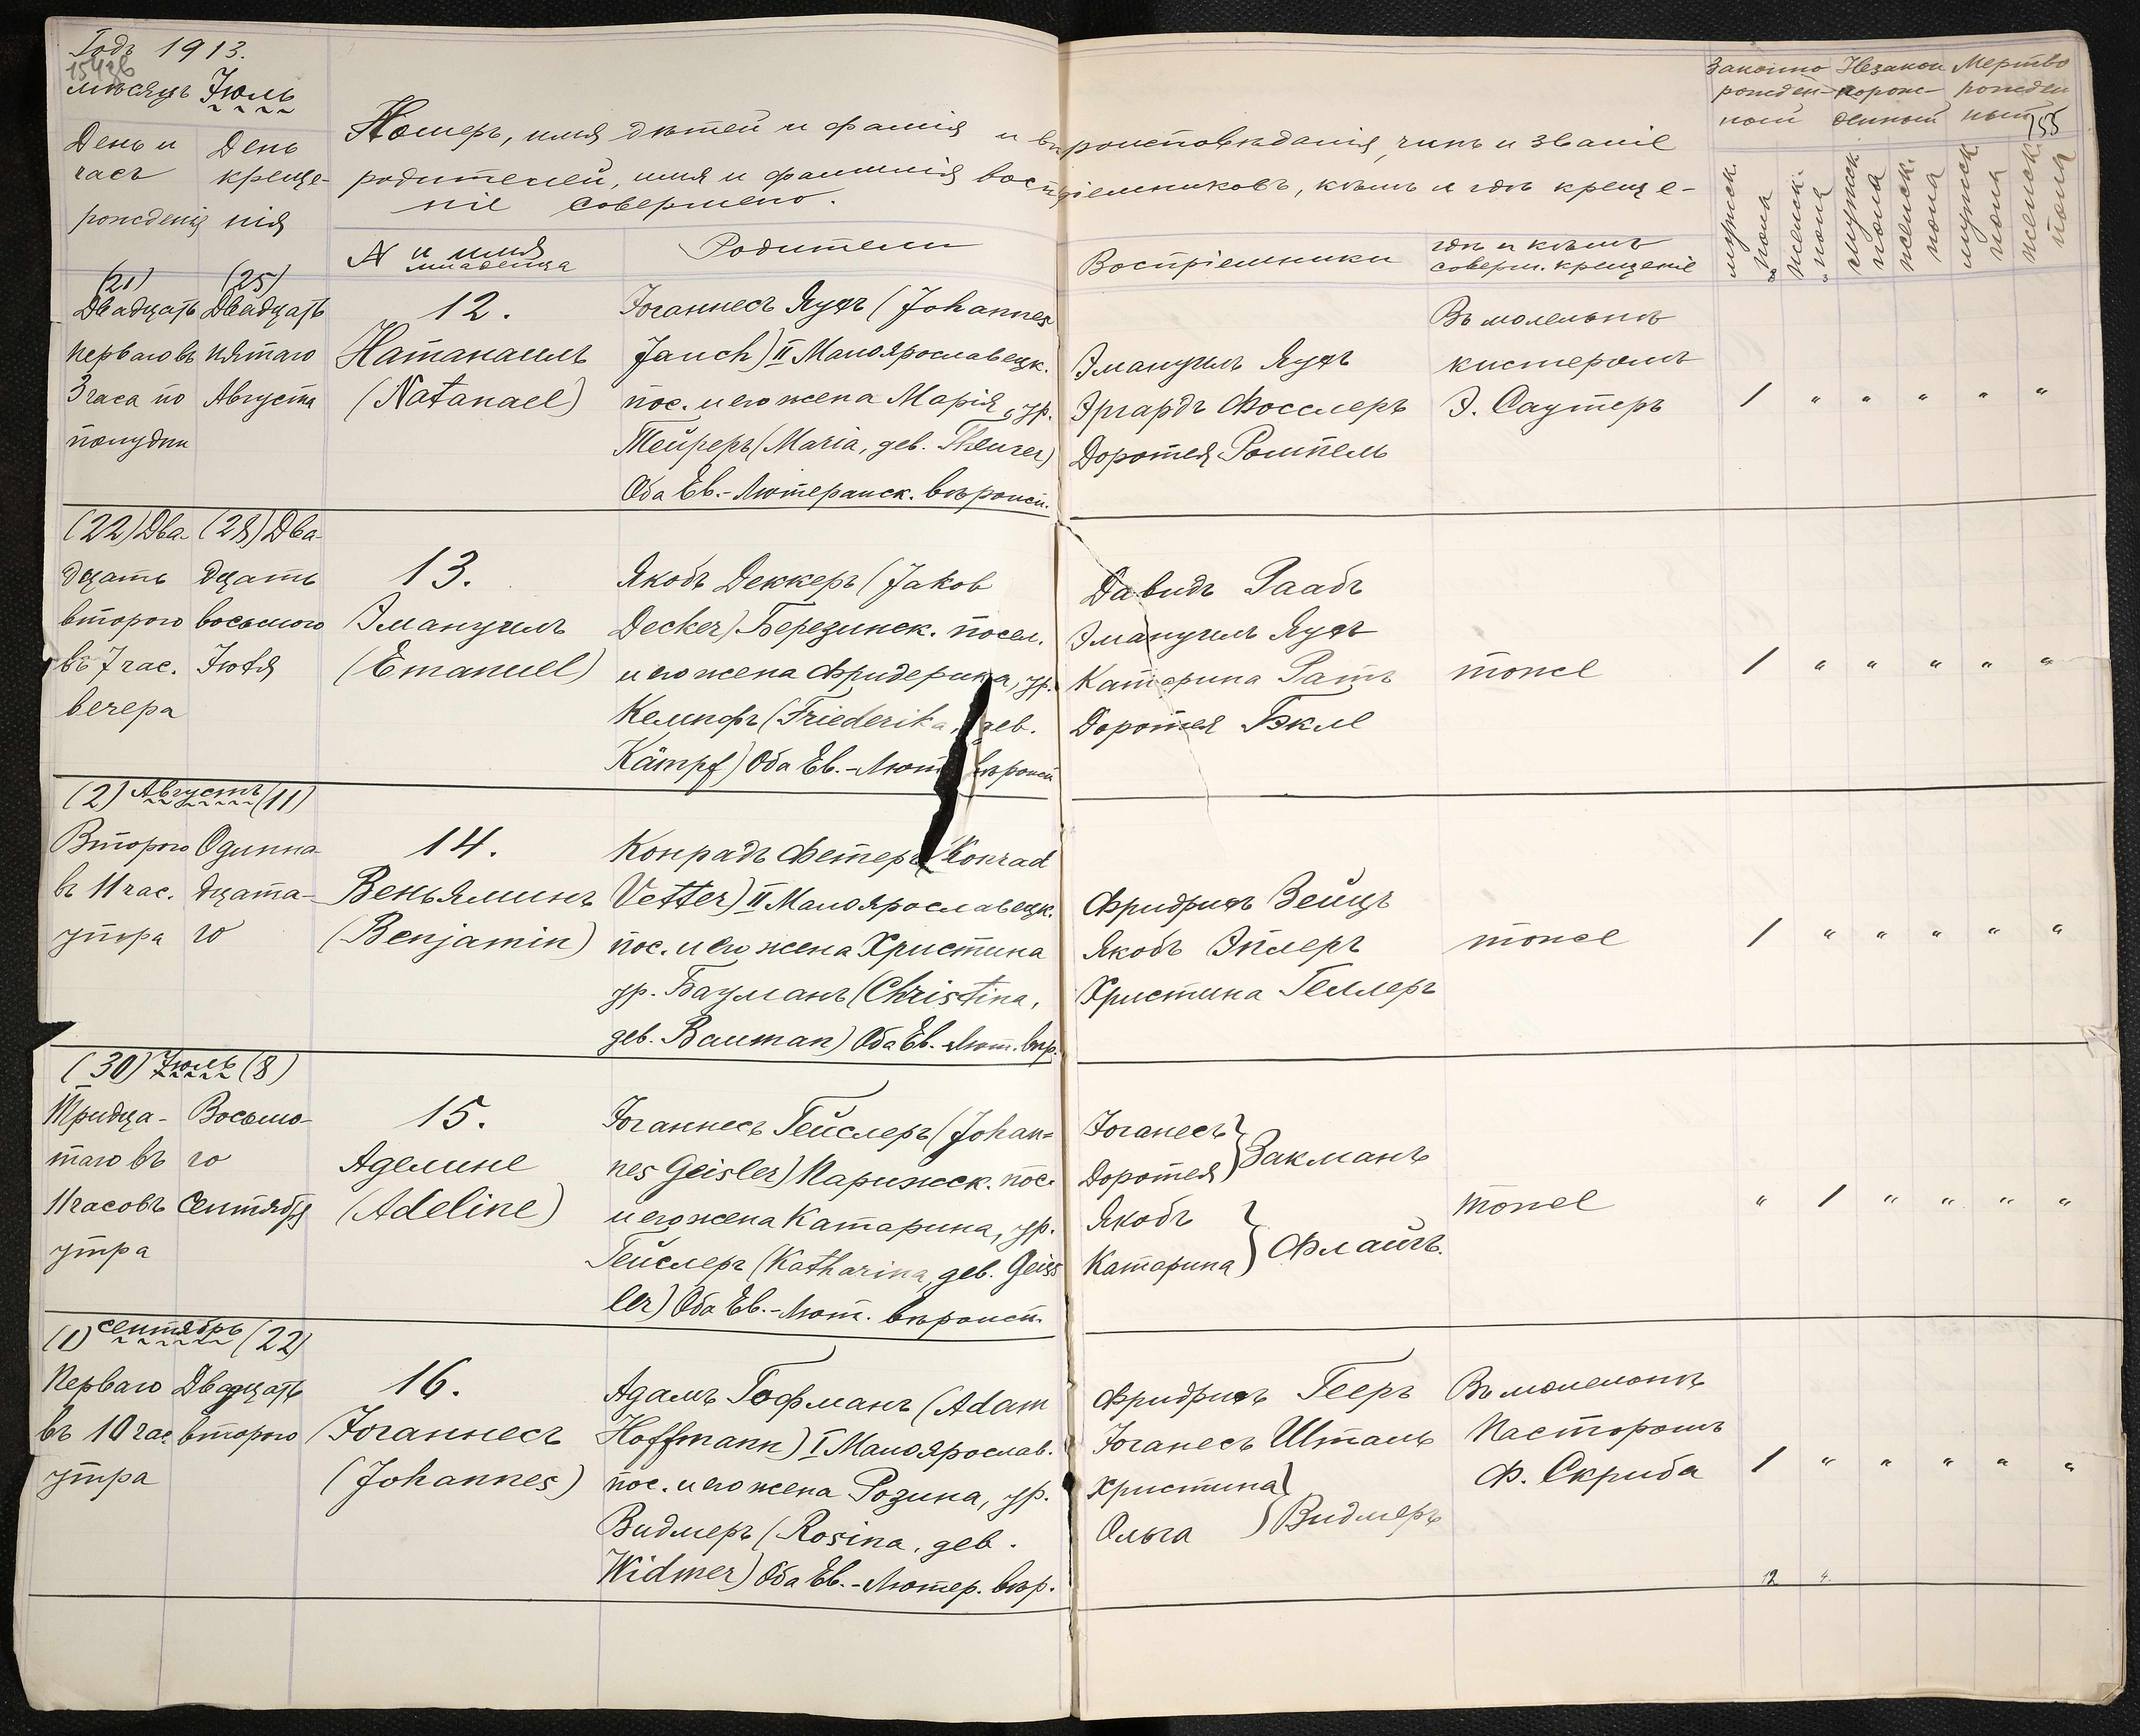 Годъ 1913.
15436
мѣсяцъ Іюль
День и
часъ
рожденія
День
креще-
нія
Номеръ, имя дѣтей и фамілія и вѣроисповѣданія, чинъ и званіе
родителей, имя и фамилія воспріемниковъ, кѣмъ и гдѣ креще-
ніе совершено.
№ и имя
младенца
Родители
Воспріемники
гдѣ и кѣмъ
соверш. крещеніе
Законно
рожден-
ной
Незакон
норож-
денной
Мертво
рожден
ный
155
мужск. пола
женск. пола
мужск. пола
женск. пола
мужск. пола
женск. пола
(21)
Двадцать
перваго въ
3 часа по
полудни
(25)
Двадцать
пятаго
Августа
12.
Натанаилъ
(Natanael)
Іоганнесъ Яухъ (Johannes
Jauch) II Малоярославецк.
пос. и его жена Марія, ур.
Тейреръ (Maria, geb. Theurer)
Оба Ев.-Лютеранск. вѣроисп.
Эмануилъ Яухъ
Эргардъ Фосслеръ
Доротея Ромпель
Въ молельнѣ
кистеромъ
Э. Саутеръ
/ " " " " "
(22) Два-
дцать
второго
въ 7 час.
вечера
(28) Два-
дцать
восьмого
Іюля
13.
Эмануилъ
(Emanuel)
Якобъ Деккеръ (Jakob
Decker) Березинск. посел.
и его жена Фридерика, ур.
Кемпфъ (Friederika, geb.
Kämpf) Оба Ев.-Лют. вѣроисп
Давидъ Раабъ
Эмануилъ Яухъ
Катарина Ратъ
Доротея Бэкле
тоже
/ " " " " "
(2) Августъ (11)
Второго
въ 11 час.
утра
Одинна-
дцата-
го
14.
Веньяминъ
(Benjamin)
Конрадъ Фетеръ (Konrad
Vetter) II Малоярославецк.
пос. и его жена Христина
ур. Бауманъ (Christina,
geb. Bauman) Оба Ев.-Лют. вѣр.
Фридрихъ Зейцъ
Якобъ Эплеръ
Христина Геллеръ
тоже
/ " " " " "
(30) Іюль (8)
Тридца-
таго въ
11 часовъ
утра
Восьмо-
го
Сентября
15.
Аделине
(Adeline)
Іоганнесъ Гейслеръ (Johan=
nes Geisler) Парижск. пос.
и его жена Катарина, ур.
Гейслеръ (Katharina, geb. Geiss
ler) Оба Ев.-Лют. вѣроисп.
Іоганесъ
Доротея } Закманъ
Якобъ
Катарина } Флайгъ.
тоже
" / " " " "
(1) Сентябрь (22)
Перваго
въ 10 час
утра
Двадцать
второго
16.
Іоганнесъ
(Johannes)
Адамъ Гофманъ (Adam
Hoffmann) I Малоярослав.
пос. и его жена Розина, ур.
Видмеръ (Rosina, geb.
Widmer) Оба Ев.-Лютер. вѣр.
Фридрихъ Гееръ
Іоганесъ Шталь
Христина
Ольга } Видмеръ
Въ молельнѣ
Пасторомъ
Ф. Скриба
/ " " " " "
12 4.